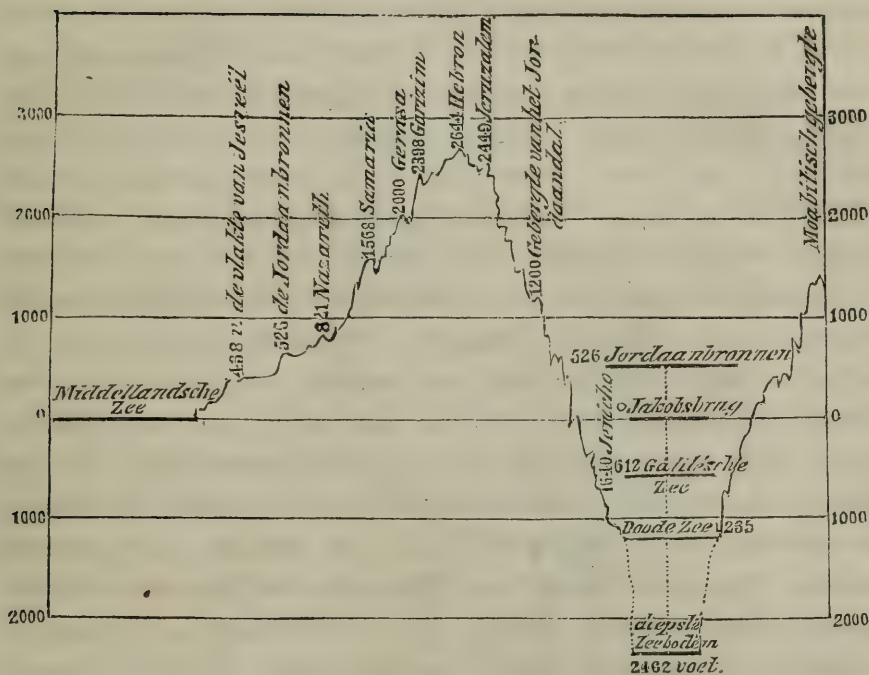 3000
2000
1000
0
1000
2000
Middellandsche
Zee
468 v. de vlakte van Jesreël
526 de Jordaanbronnen
821 Nazareth
1568 Samaria
2000 Gerasa
2398 Garizim
2644 Hebron
2449 Jeruzalem
1200 Gebergte van het Jor-
daandal.
Moabitisch gebergte
526 Jordaanbronnen
0 Jakobsbrug
Jericho
612 Galilésche
Zee
Doode Zee 1235
diepste
Zeebodem
2462 voet.
3000
2000
1000
0
1000
2000